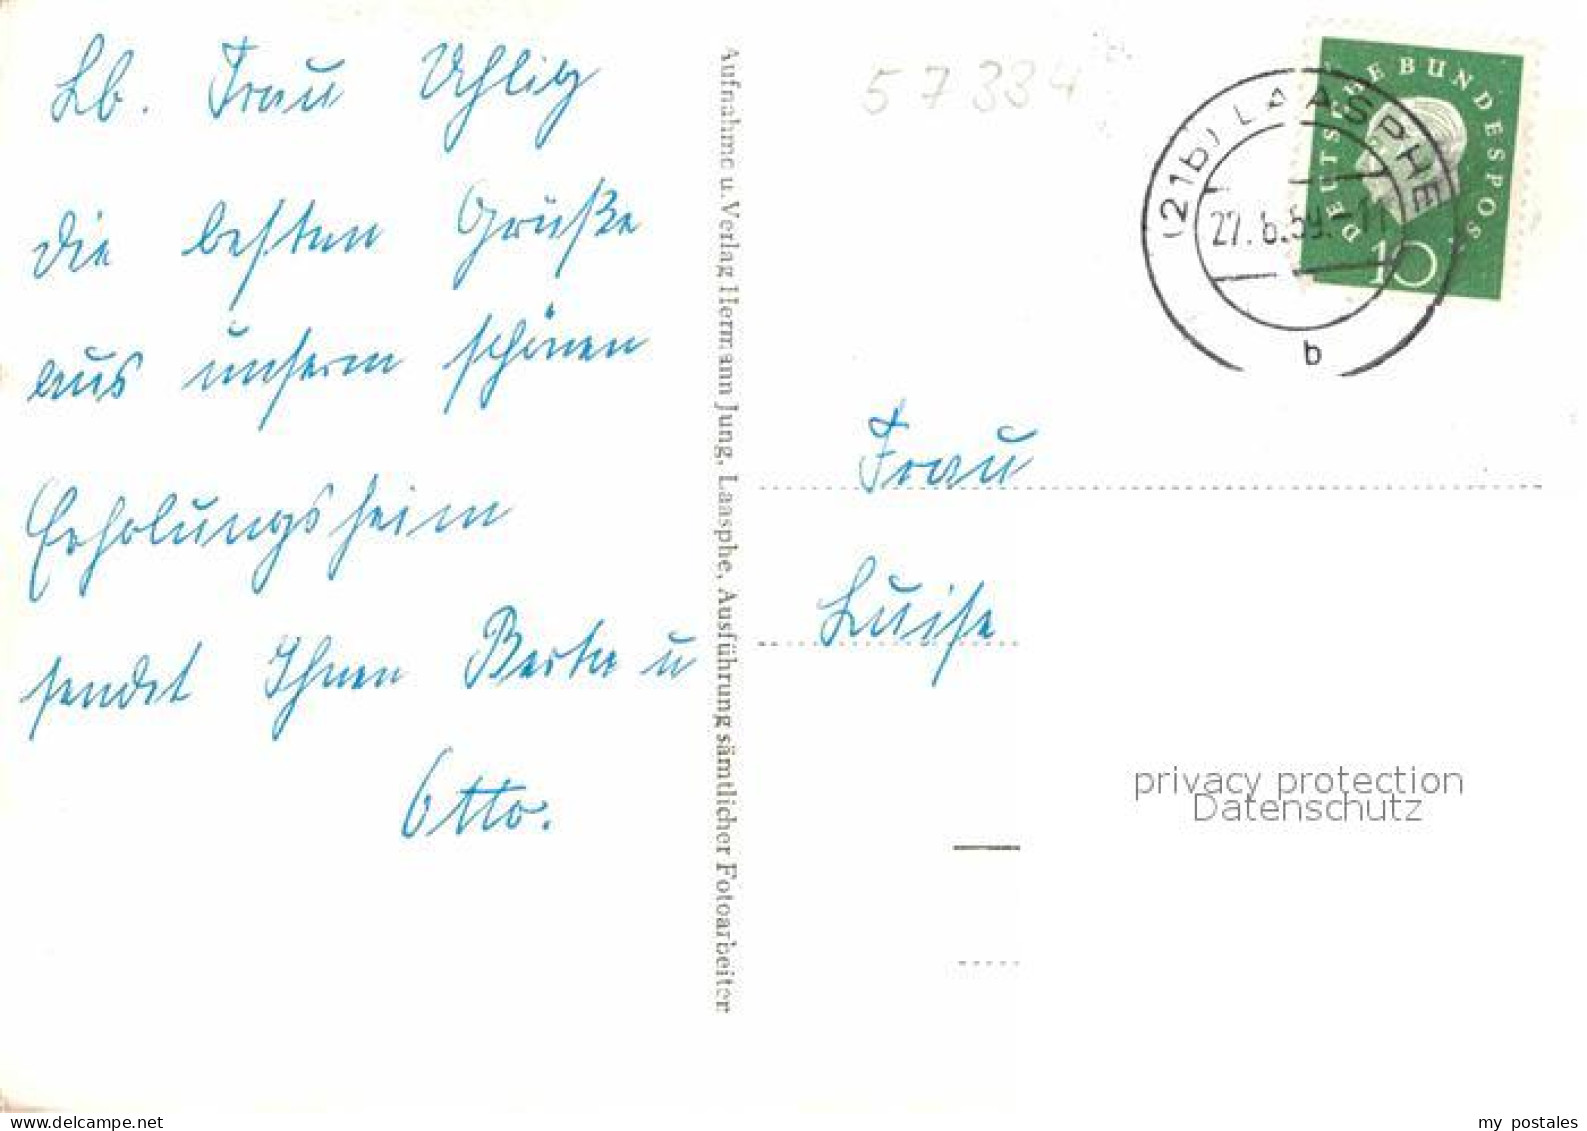 Lb. Frau Uhlig
die besten Grüße
aus unserm schönen
Erholungsheim
sendet Ihnen Berta u
Otto.
Aufnahme u. Verlag Hermann Jung, Laasphe, Ausführung sämtlicher Fotoarbeiten
57334
DEUTSCHE BUNDESPOST
10
(21b) LAASPHE
27.6.59
b
Frau
Luise
privacy protection
Datenschutz
my postales